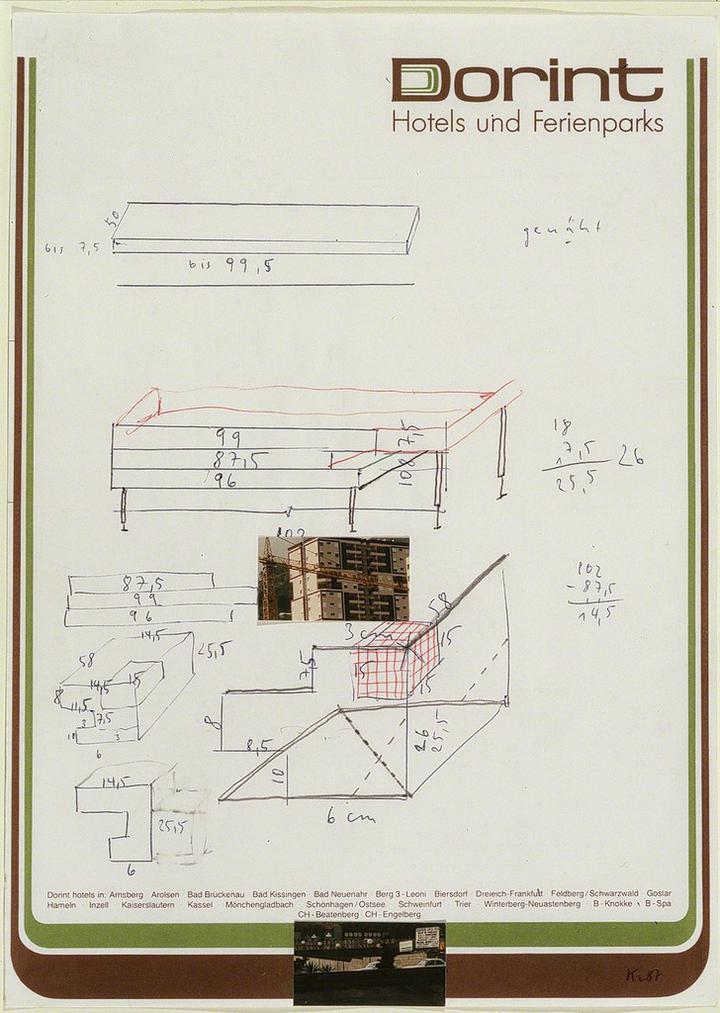 Dorint
Hotels und Ferienparks
50
bis 7,5
bis 99,5
genäht
99
87,5
96
7,5
108
102
18
7,5
25,5
26
102
- 87,5
14,5
87,5
99
96
14,5
58
25,5
14,5
15
8
11,5
3
7,5
3
6
14,5
25,5
6
3 cm
58
15
15
15
7,5
8
8,5
10
26
25,5
6 cm
Dorint hotels in: Arnsberg Arolsen Bad Brückenau Bad Kissingen Bad Neuenahr Berg 3-Leoni Biersdorf Dreieich-Frankfurt Feldberg/Schwarzwald Goslar
Hameln Inzell Kaiserslautern Kassel Mönchengladbach Schönhagen/Ostsee Schweinfurt Trier Winterberg-Neuastenberg B-Knokke B-Spa
CH-Beatenberg CH-Engelberg